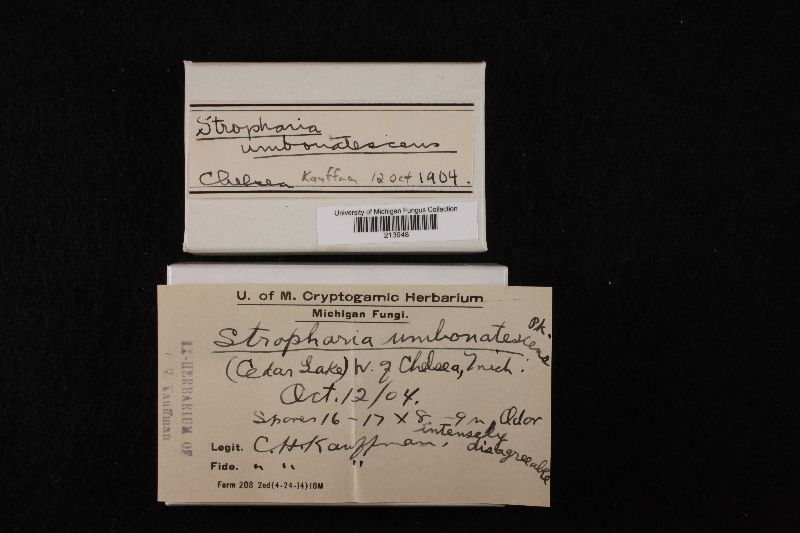 Stropharia
umbonatescens
Chelsea Kauffman 12 Oct 1904.
University of Michigan Fungus Collection
213948
U. of M. Cryptogamic Herbarium
Michigan Fungi.
Stropharia umbonatescens Pk.
(Cedar Lake) W. of Chelsea, Mich.
Oct. 12/04.
Spores 16-17 X 8-9 µ, Odor
intensely
disagreeable
Legit. C.H. Kauffman.
Fide. " " "
Form 208 2ed(4-24-14)10M
EX-HERBARIUM OF
C. H. Kauffman